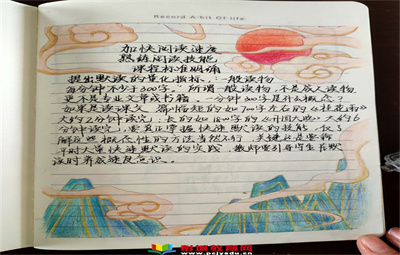 Record A·bit Of·life
加快阅读速度
熟练阅读技能
课程标准明确
提出默读的量化指标：一般读物
每分钟不少于300字。所谓一般读物，不是成人读物
更不是专业文章或书籍。一分钟300字是什么概念？
如果是读课文，篇幅短的如700字左右的《桂花雨》
大约2分钟读完，长的如1800字的《开国大典》大约6
分钟读完。要真正掌握快速默读的技能，仅了
解这些概念性的方法当然不行，关键还是要靠
平时大量快速默读的实践，教师要引导学生在默
读时养成速度意识。
创端教育网
www.pcjyadu.cn